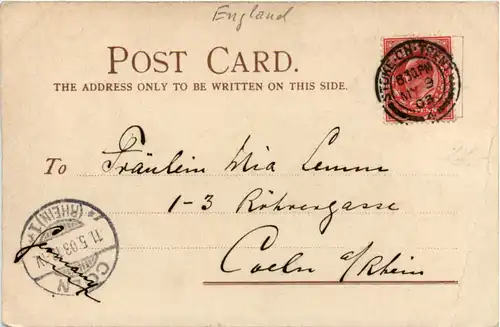 England
POST CARD.
THE ADDRESS ONLY TO BE WRITTEN ON THIS SIDE.
STOKE-ON-TRENT
8.30 PM
MY 9
03
To Fräulein Mia Lemm
1-3 Röhrergasse
Coeln a/Rhein
Germany
CÖLN
(RHEIN) 1
11.5.03